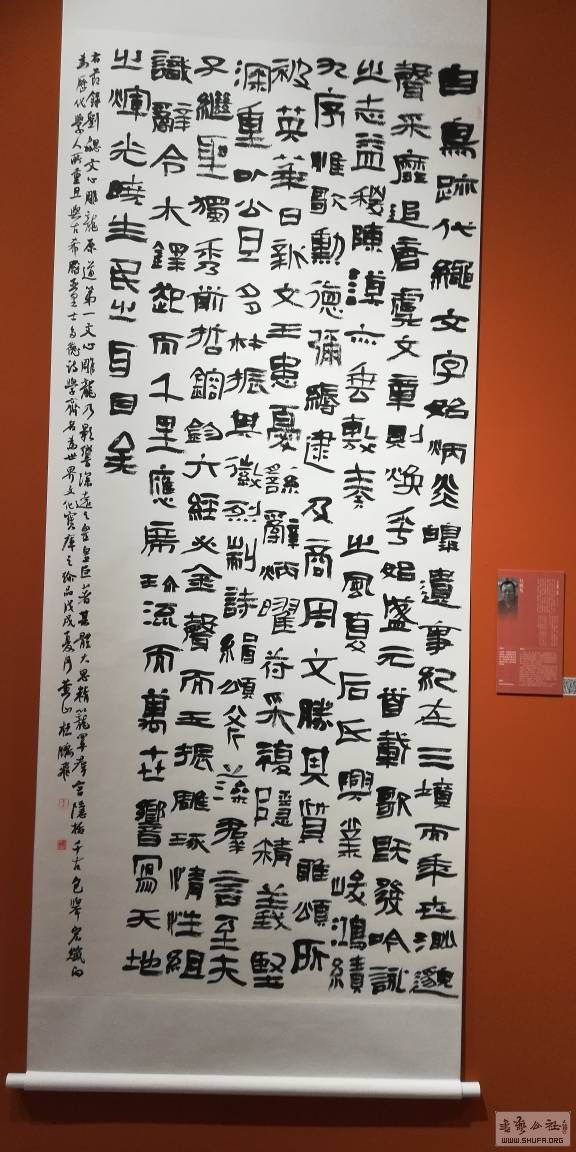 自鳥跡代繩文字始炳炎皞遺事紀在三墳而年世渺邈
聲采靡追唐虞文章則煥乎始盛元首載歌既發吟詠
之志益稷陳謨亦垂敷奏之風夏后氏興業峻鴻績
九序惟歌勳德彌縟逮及商周文勝其質雅頌所
被英華日新文王患憂繇辭炳曜符采複隱精義堅
深重以公旦多材振其徽烈剬詩緝頌斧藻群言至夫
子繼聖獨秀前哲鎔鈞六經必金聲而玉振雕琢情性組
織辭令木鐸起而千里應席珍流而萬世響寫天地
之輝光曉生民之耳目矣
右節錄劉勰文心雕龍原道第一文心雕龍乃影響深遠之皇皇巨著其體大思精籠罩群言隱括千古包舉宏纖向
為歷代學人所重且與古希臘亞里士多德詩學齊名為世界文化寶庫之珍品戊戌夏月黃山杜鵬飛
书艺公社
WWW.SHUFA.ORG